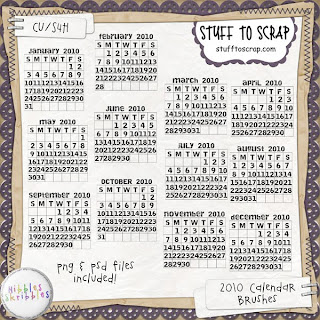 CU/S4H
STUFF TO SCRAP
stufftoscrap.com
January 2010
S M T W T F S
1 2
3 4 5 6 7 8 9
10 11 12 13 14 15 16
17 18 19 20 21 22 23
24 25 26 27 28 29 30
31
February 2010
S M T W T F S
1 2 3 4 5 6
7 8 9 10 11 12 13
14 15 16 17 18 19 20
21 22 23 24 25 26 27
28
march 2010
S M T W T F S
1 2 3 4 5 6
7 8 9 10 11 12 13
14 15 16 17 18 19 20
21 22 23 24 25 26 27
28 29 30 31
APRIL 2010
S M T W T F S
1 2 3
4 5 6 7 8 9 10
11 12 13 14 15 16 17
18 19 20 21 22 23 24
25 26 27 28 29 30
may 2010
S M T W T F S
1
2 3 4 5 6 7 8
9 10 11 12 13 14 15
16 17 18 19 20 21 22
23 24 25 26 27 28 29
30 31
June 2010
S M T W T F S
1 2 3 4 5
6 7 8 9 10 11 12
13 14 15 16 17 18 19
20 21 22 23 24 25 26
27 28 29 30
JULY 2010
S M T W T F S
1 2 3
4 5 6 7 8 9 10
11 12 13 14 15 16 17
18 19 20 21 22 23 24
25 26 27 28 29 30 31
AUGUST 2010
S M T W T F S
1 2 3 4 5 6 7
8 9 10 11 12 13 14
15 16 17 18 19 20 21
22 23 24 25 26 27 28
29 30 31
September 2010
S M T W T F S
1 2 3 4
5 6 7 8 9 10 11
12 13 14 15 16 17 18
19 20 21 22 23 24 25
26 27 28 29 30
OCTOBER 2010
S M T W T F S
1 2
3 4 5 6 7 8 9
10 11 12 13 14 15 16
17 18 19 20 21 22 23
24 25 26 27 28 29 30
31
november 2010
S M T W T F S
1 2 3 4 5 6
7 8 9 10 11 12 13
14 15 16 17 18 19 20
21 22 23 24 25 26 27
28 29 30
December 2010
S M T W T F S
1 2 3 4
5 6 7 8 9 10 11
12 13 14 15 16 17 18
19 20 21 22 23 24 25
26 27 28 29 30 31
Nibbles
Skribbles
png & psd files
included!
2010 Calendar
Brushes